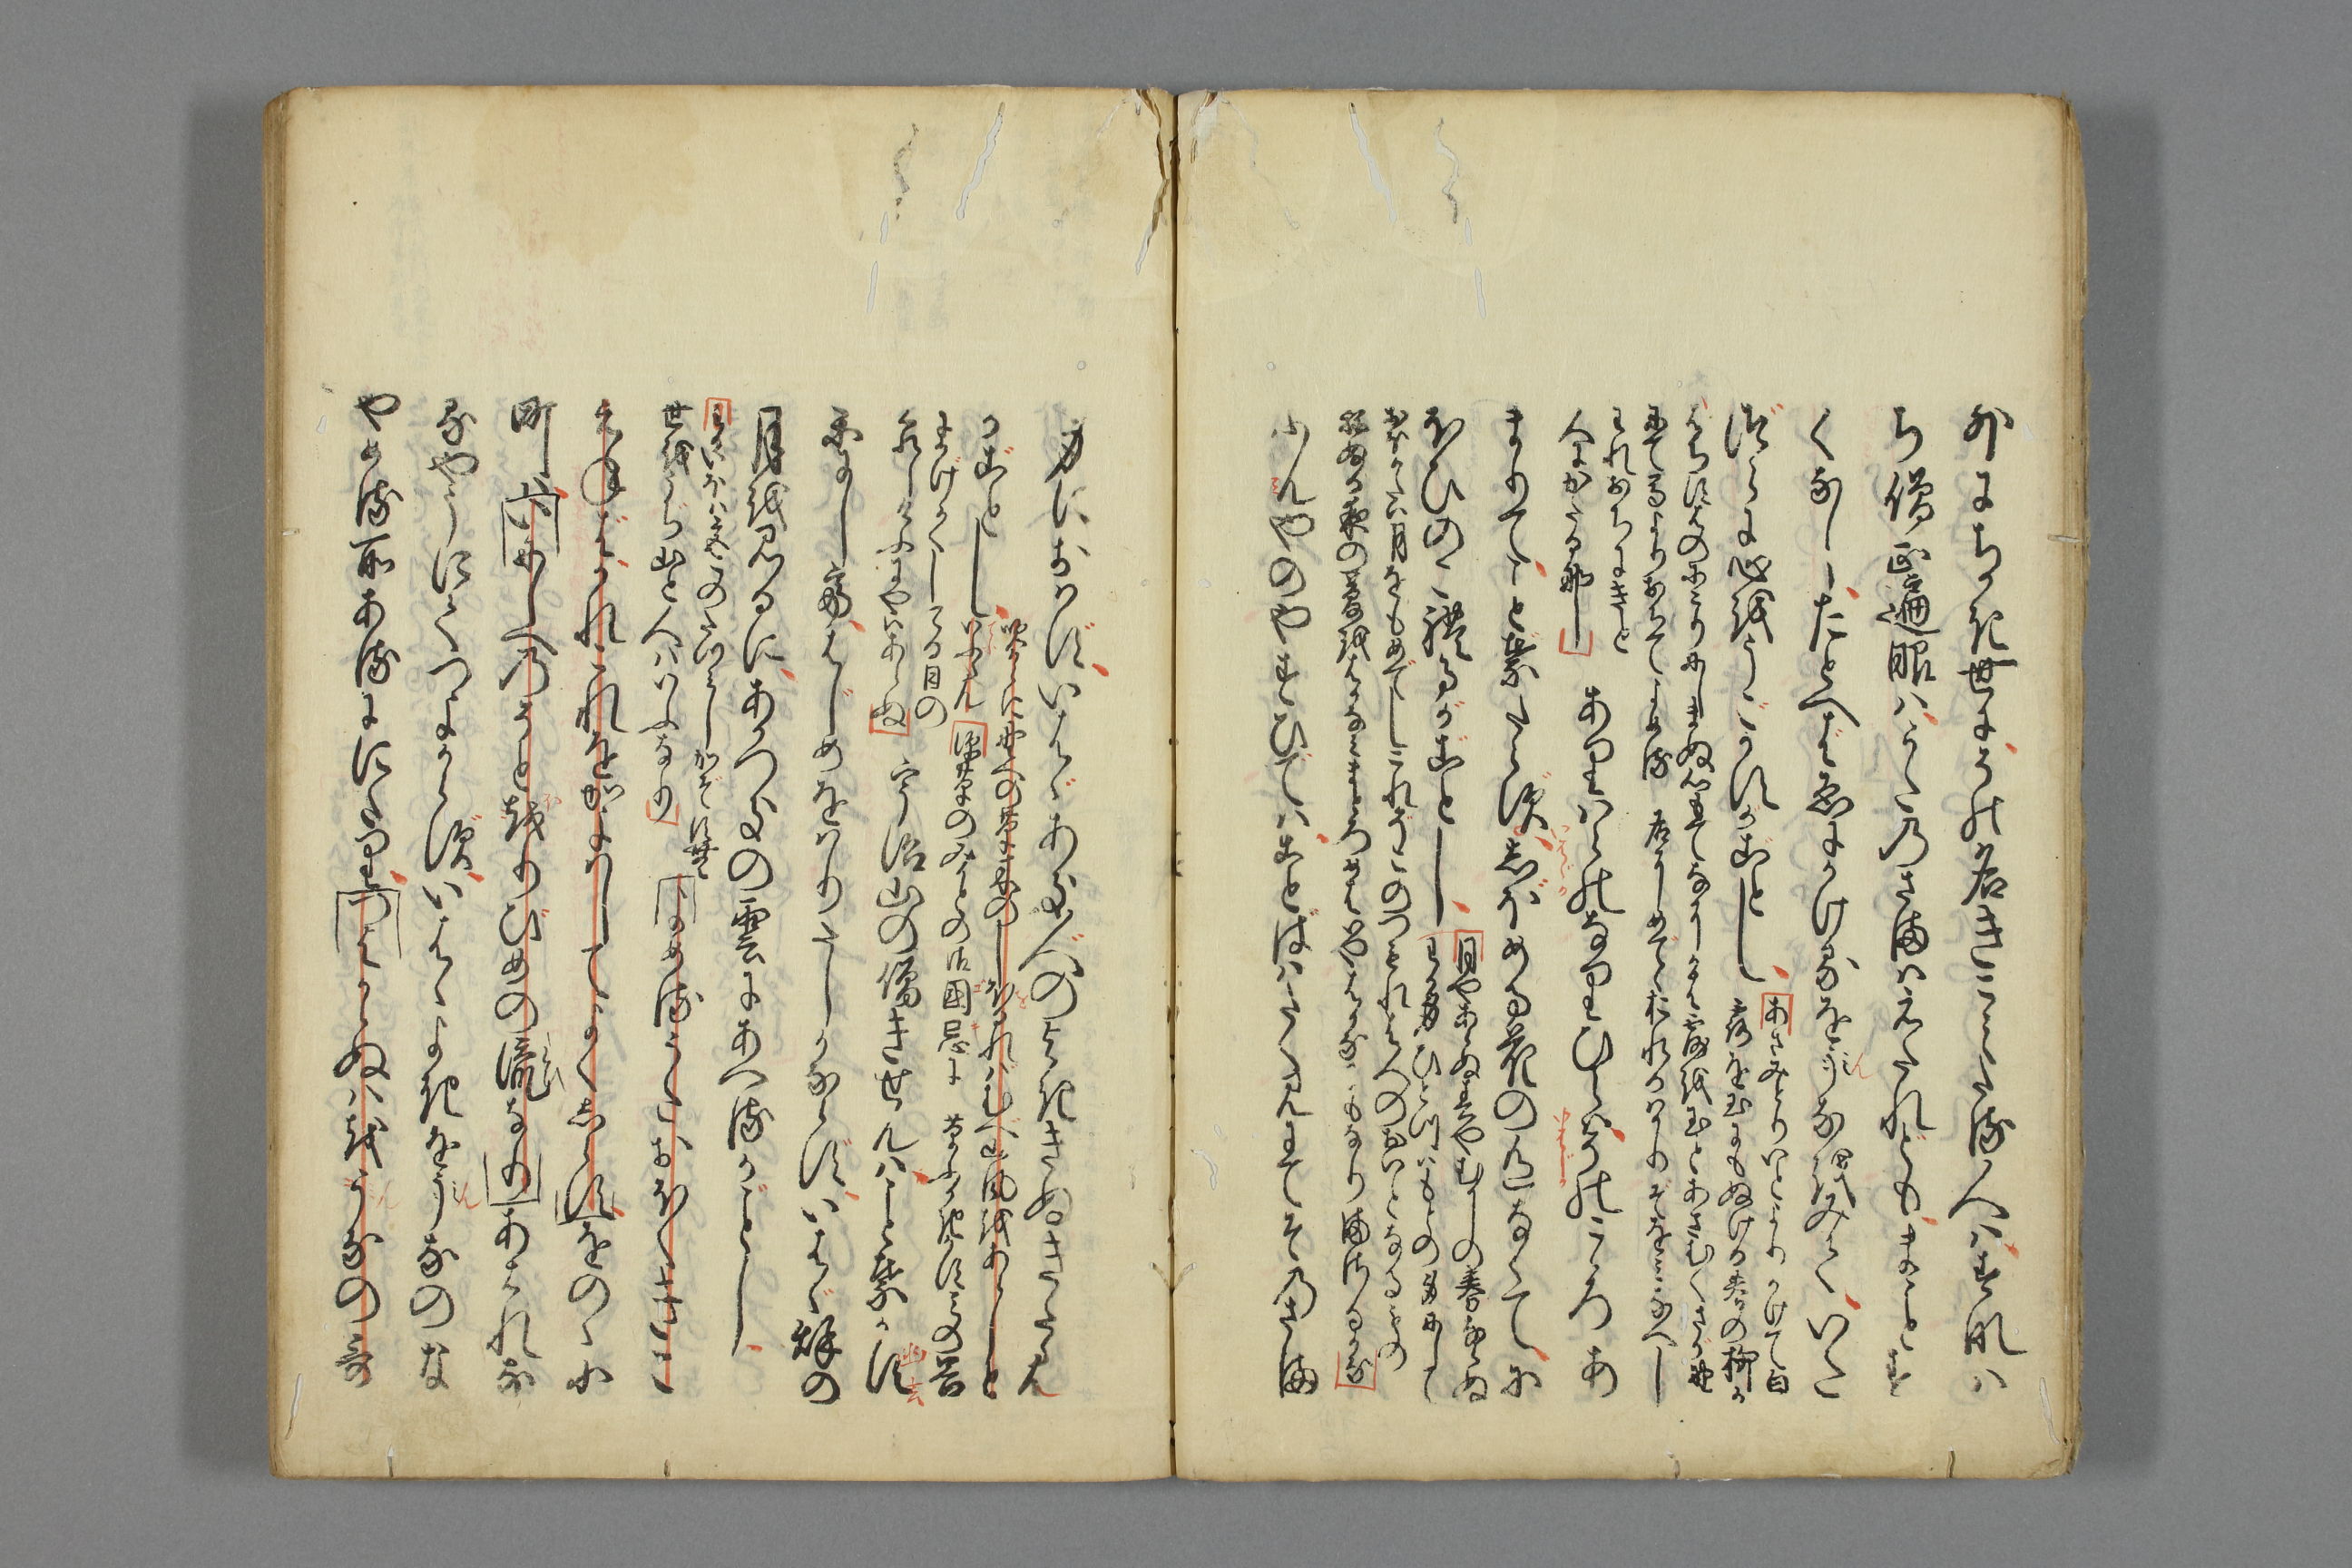 外にちかき世にその名きこえたる人はすなは
ち僧正遍昭はうたのさまはえたれどもまことす
くなしたとへばゑにかけるをうなをみていた
づらに心をうごかすがごとし
あさみどりいとよりかけて白
露を玉にもぬける春の柳か
はちすはのにごりにしまぬ心もてなにかは露を玉とあざむくさがの
にて馬よりおちてよめる 名にめでておれるばかりぞをみなへし
われおちにきと
人にかたるな
ありはらのなりひらはそのこゝろあ
まりてことばたらずしぼめる花の色なくてに
ほひのこれるがごとし
月やあらぬ春やむかしの春ならぬ
わが身ひとつはもとの身にして
おほかたは月をもめでじこれぞこのつもれば人のおいとなるもの
ねぬる夜の夢をはかなみまどろめばいやはかなにもなりまさるかな
ふんやのやすひではことばはたくみにてそのさま
身におはずいはゞあき人のよききぬきたらん
がごとし
吹からに野べの草木のしほるればむべ山風をあらしと
いふらん 深草のみかどの御国忌に 草ふかきかすみの谷
にかげかくしてる日の
くれしけふにやはあらぬ
宇治山の僧きせんはことばかす
かにしてはじめをはりたしかならずいはゞ秋の
月を見るにあかつきの雲にあへるがごとし
わがいほは都のたつみしかぞ住
世をうぢ山と人はいふなり
よめるうたおほくきこえ
ねばかれこれをかよはしてよくしらずをのゝ小
町はいにしへのそとをりびめの流なりあはれな
るやうにてつよからずいはゞよきをうなのな
やめる所あるににたりつよからぬはをうなの哥